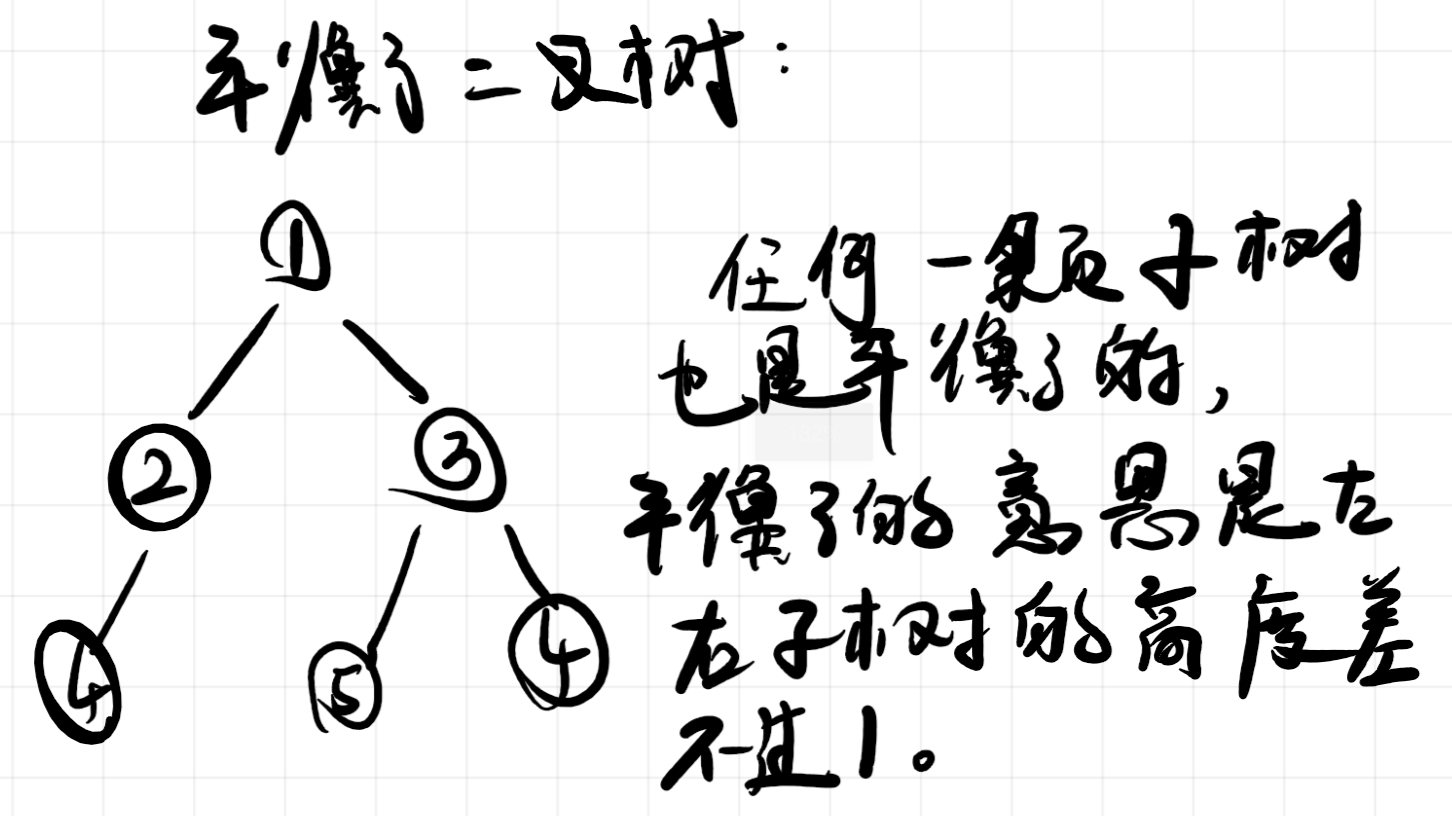 平衡二叉树:
①
② ③
4 5 4
任何一颗子树
也是平衡的,
平衡的意思是左
右子树的高度差
不过1。